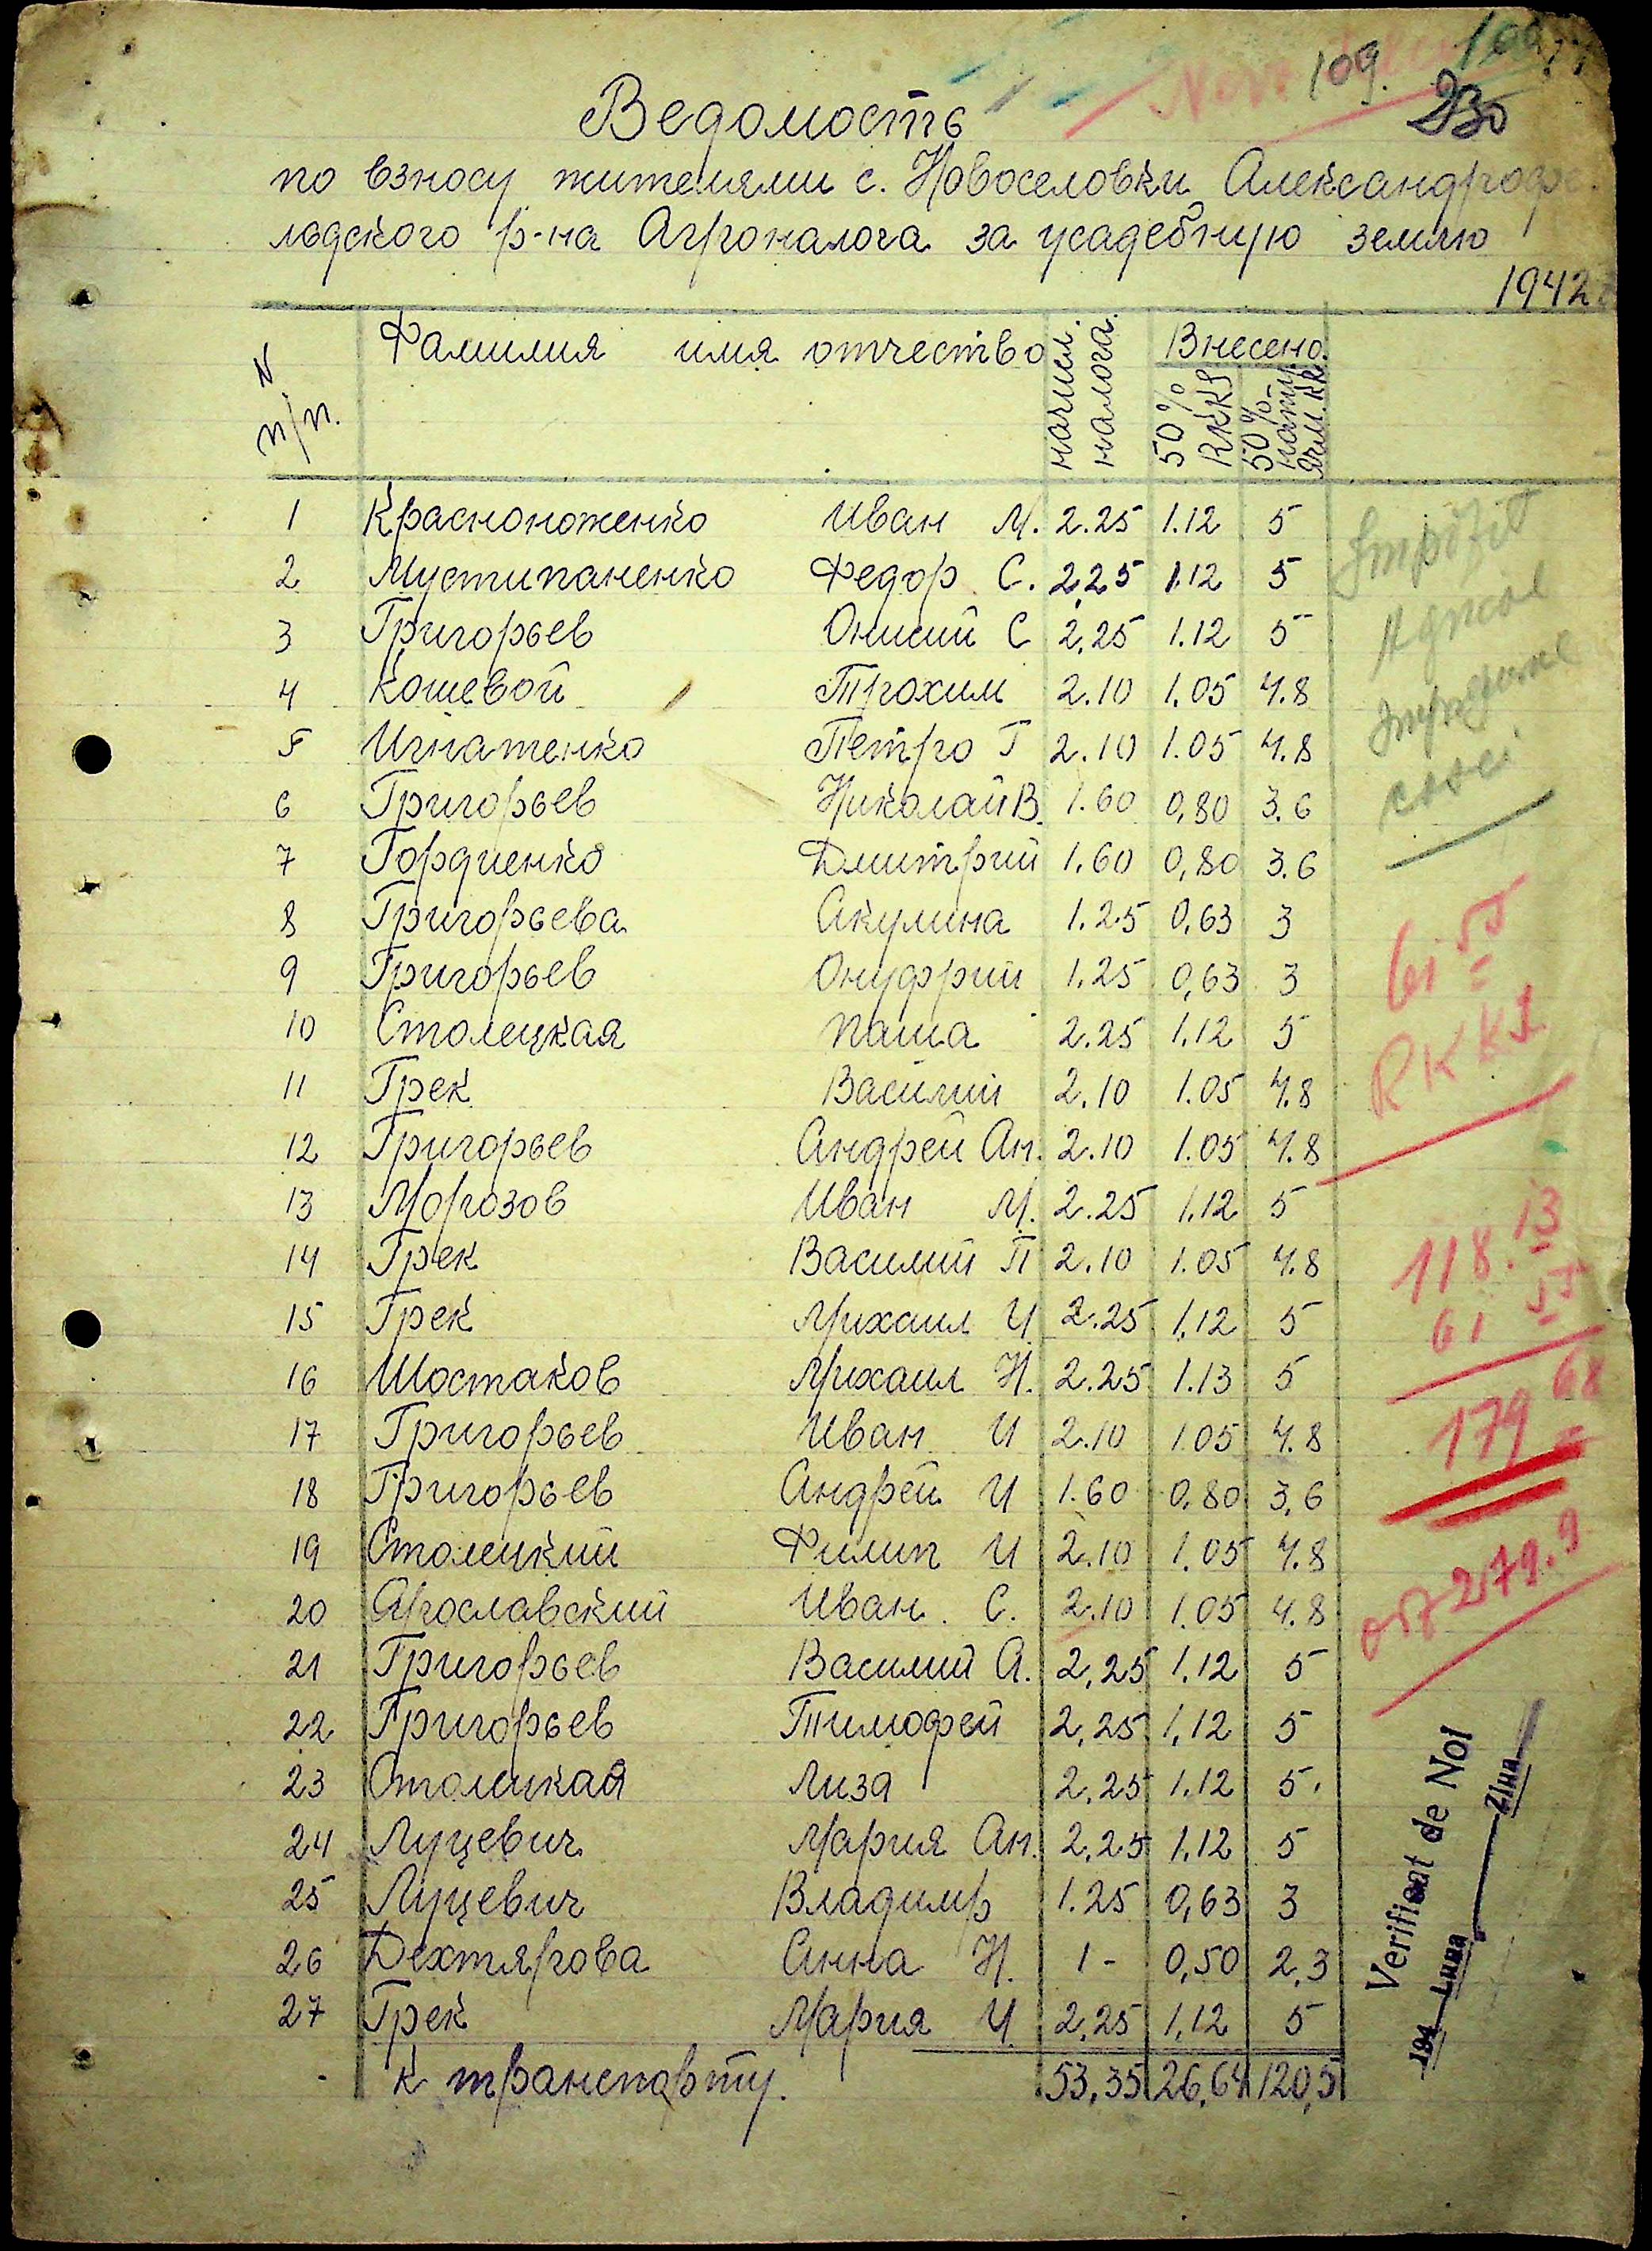 109.
230
Ведомость
по взносу жителями с. Новоселовки Александрофе
льдского р-на Агроналога за усадебную землю
1942
N п/п. Фамилия имя отчество начисл. налога. Внесено.
50% RKKS 50% натур. ячм. кк.
1 Красноноженко Иван М. 2.25 1.12 5
2 Мустипаненко Федор С. 2,25 1.12 5
3 Григорьев Онисий С 2,25 1.12 5
4 Кошевой Трохим 2.10 1.05 4.8
5 Игнатенко Петро Г 2.10 1.05 4.8
6 Григорьев Николай В. 1.60 0,80 3.6
7 Гордиенко Дмитрий 1.60 0,80 3.6
8 Григорьева Акулина 1.25 0,63 3
9 Григорьев Онуфрий 1.25 0,63 3
10 Столецкая Паша 2.25 1.12 5
11 Грек Василий 2.10 1.05 4.8
12 Григорьев Андрей Ан. 2.10 1.05 4.8
13 Морозов Иван М. 2.25 1.12 5
14 Грек Василий П 2.10 1.05 4.8
15 Грек Михаил И 2.25 1.12 5
16 Шостаков Михаил Н. 2.25 1.13 5
17 Григорьев Иван И 2.10 1.05 4.8
18 Григорьев Андрей И 1.60 0,80 3,6
19 Столицкий Филип И 2.10 1.05 4.8
20 Ярославский Иван. С. 2.10 1.05 4.8
21 Григорьев Василий А. 2,25 1.12 5
22 Григорьев Тимофей 2,25 1,12 5
23 Столицкая Лиза 2,25 1.12 5.
24 Луцевич Мария Ан. 2,25 1,12 5
25 Луцевич Владимир 1.25 0,63 3
26 Дехтярова Анна Н. 1 - 0,50 2,3
27 Грек Мария И. 2,25 1,12 5
к транспорту. 53,35 26,64 120,5
Impozit
Agricol
61 55
RKKS
118.13
61 55
179 68
279.9
Verificat de Noi
194 Luna Ziua